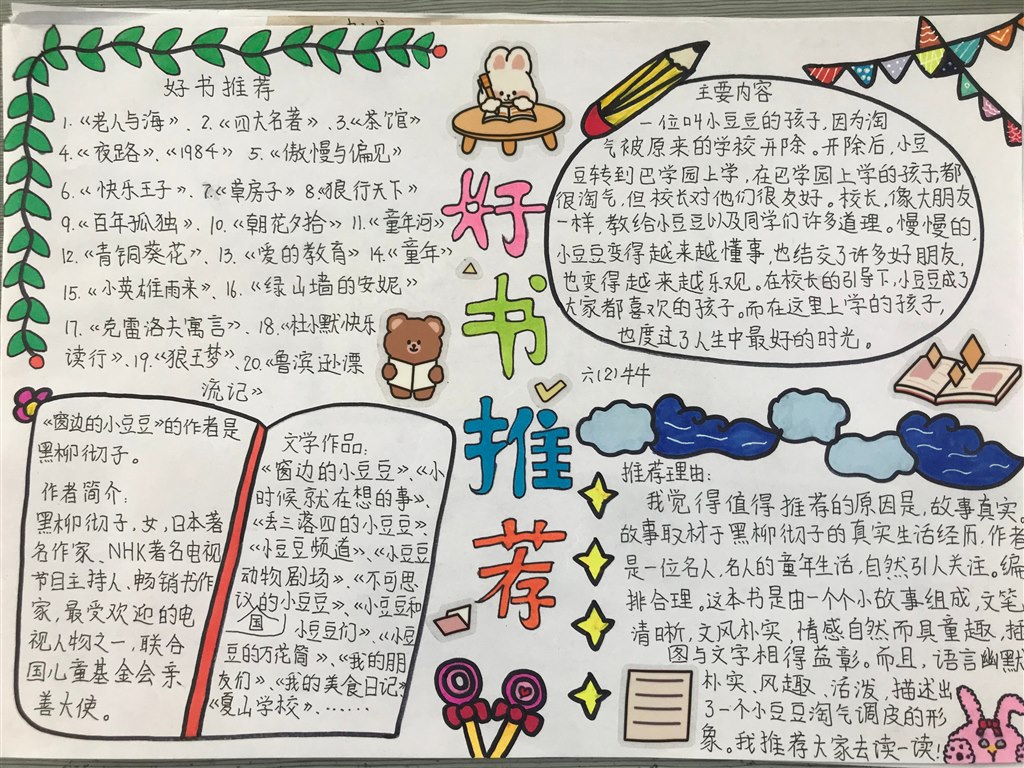 好书推荐
1.《老人与海》、2.《四大名著》、3.《茶馆》
4.《夜路》、《1984》 5.《傲慢与偏见》
6.《快乐王子》、7.《草房子》8.《狼行天下》
9.《百年孤独》、10.《朝花夕拾》11.《童年河》
12.《青铜葵花》、13.《爱的教育》14.《童年》
15.《小英雄雨来》、16.《绿山墙的安妮》
17.《克雷洛夫寓言》、18.《杜小默快乐
读行》、19.《狼王梦》、20.《鲁滨逊漂
流记》
好书推荐
主要内容
一位叫小豆豆的孩子,因为淘
气被原来的学校开除。开除后,小豆
豆转到巴学园上学,在巴学园上学的孩子都
很淘气,但校长对他们很友好。校长,像大朋友
一样,教给小豆豆以及同学们许多道理。慢慢的,
小豆豆变得越来越懂事,也结交了许多好朋友,
也变得越来越乐观。在校长的引导下,小豆豆成了
大家都喜欢的孩子。而在这里上学的孩子,
也度过了人生中最好的时光。
六(2)牛牛
《窗边的小豆豆》的作者是
黑柳彻子。
作者简介:
黑柳彻子,女,日本著
名作家、NHK著名电视
节目主持人、畅销书作
家,最受欢迎的电
视人物之一,联合
国儿童基金会亲
善大使。
文学作品:
《窗边的小豆豆》、《小
时候就在想的事》、
《丢三落四的小豆豆》
《小豆豆频道》、《小豆豆
动物剧场》、《不可思
议的国小豆豆》、《小豆豆和
小豆豆们》、《小豆
豆的万花筒》、《我的朋
友们》、《我的美食日记》
《夏山学校》、……
推荐理由:
我觉得值得推荐的原因是,故事真实。
故事取材于黑柳彻子的真实生活经历,作者
是一位名人,名人的童年生活,自然引人关注。编
排合理。这本书是由一个个小故事组成,文笔
清晰,文风朴实,情感自然而具童趣,插
图与文字相得益彰。而且,语言幽默
朴实、风趣、活泼,描述出
了一个小豆豆淘气调皮的形
象。我推荐大家去读一读!